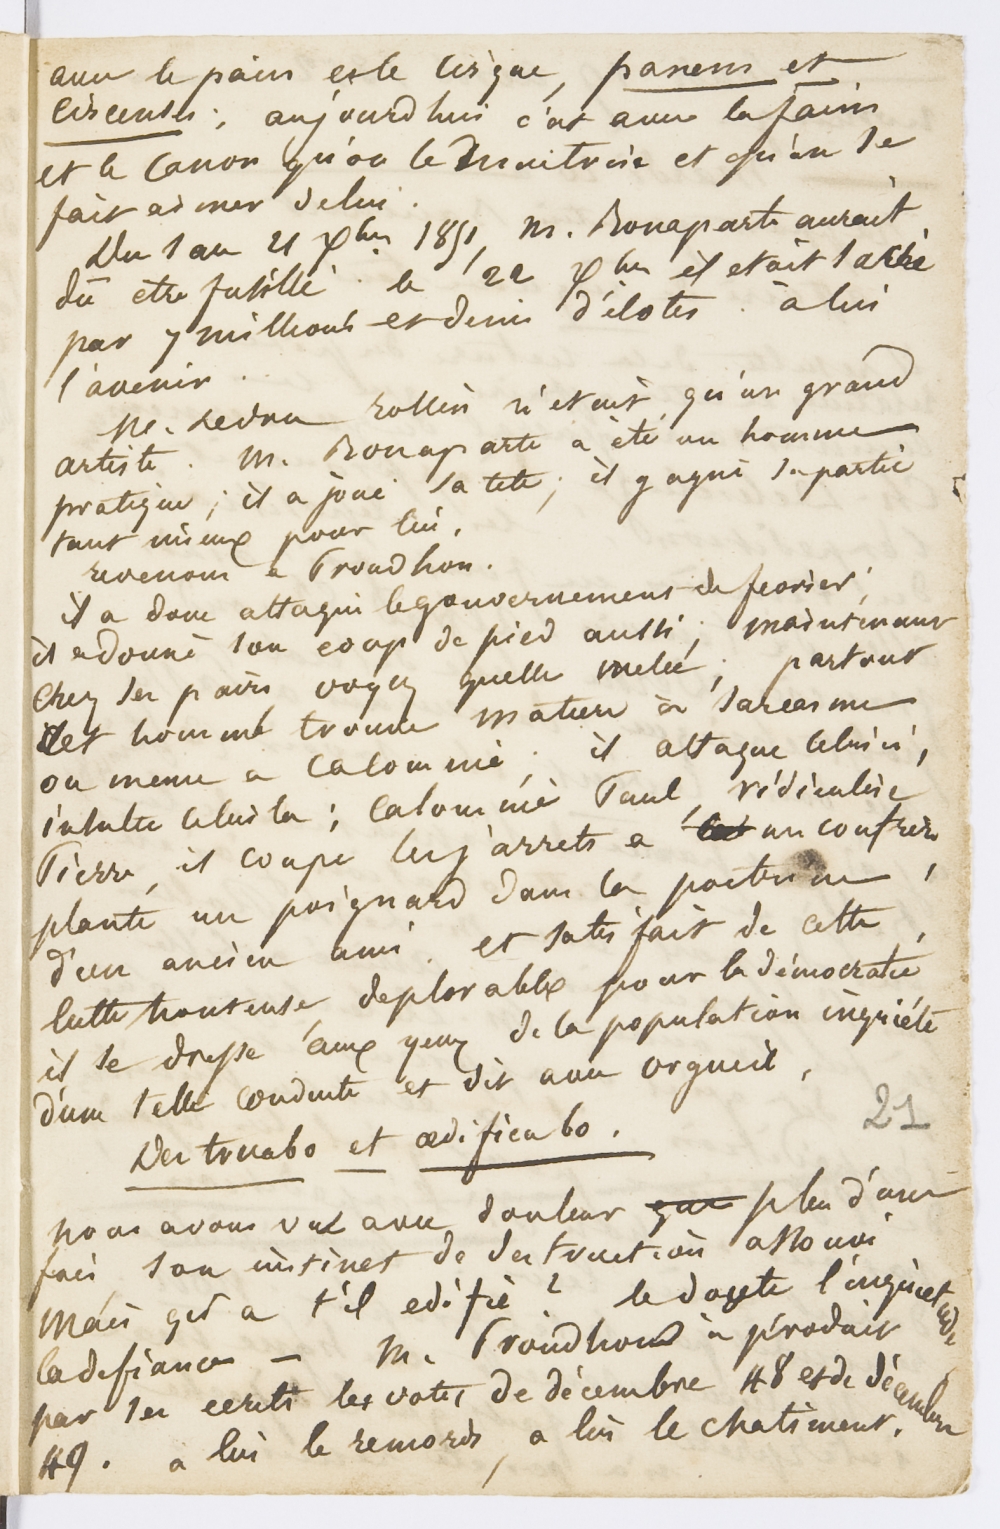 avec le pain et le cirque, panem et
circenses; aujourdhui c'est avec la faim
et le canon qu'on le maitrise et qu'on se
fait aimer de lui.
Du 1 au 21 Xbre 1851, M. Bonaparte aurait
dû etre fusillé. le 22 Xbre il etait sacré
par 7 millions et demi d'ilotes. à lui
l'avenir.
M. Ledru Rollin n'etait qu'un grand
artiste. M. Bonaparte a été un homme
pratique; il a joué sa tete; il gagné sa partie
tant mieux pour lui.
revenons a Proudhon.
il a donc attaqué le gouvernement de fevrier;
il a donné son coup de pied aussi; maintenant
chez ses pairs voyez quelle melée; partout
cet homme trouve matiere à sarcasme
ou meme a calomnie; il attaque celui ci,
insulte celui la; calomnie Paul, ridiculise
Pierre, il coupe les jarrets a un confrere
plante un poignard dans la poitrine
d'un ancien ami. et satisfait de cette
lutte honteuse, deplorable pour la démocratie
il se dresse aux yeux de la population inquiéte
d'une telle conduite et dit avec orgueil,
Destruabo et œdificabo.
21
nous avons vu avec douleur que plus d'une
fois son instinct de destruction assouvi
Mais qu'a t'il edifié? le doute l'inquietude
la defiance — M. Proudhon à produit
par ses ecrits les votes de décembre 48 et de décembre
49. a lui le remords, a lui le chatiment.